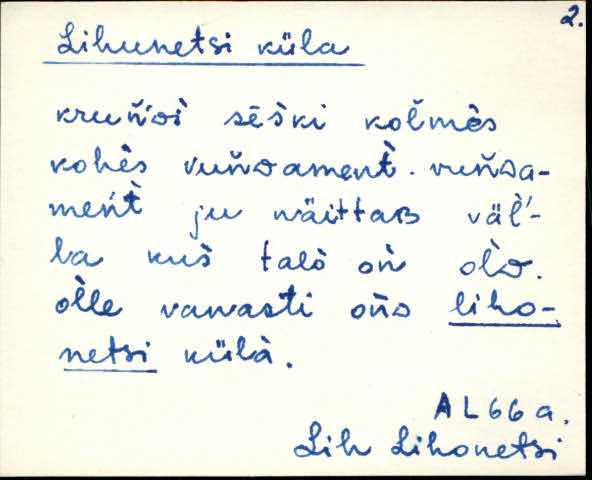 2.
Lihunetsi küla
kruǹ'ᴅì sēški kolmès
kohès vuǹᴅament̀. vuǹᴅa-
meńt̀ ju näittaʙ väĺ-
la kus̀ talò oǹ olᴅ̀.
òlle vanasti oñᴅ liho-
netsi külà.
AL66a.
Lih Lihonetsi